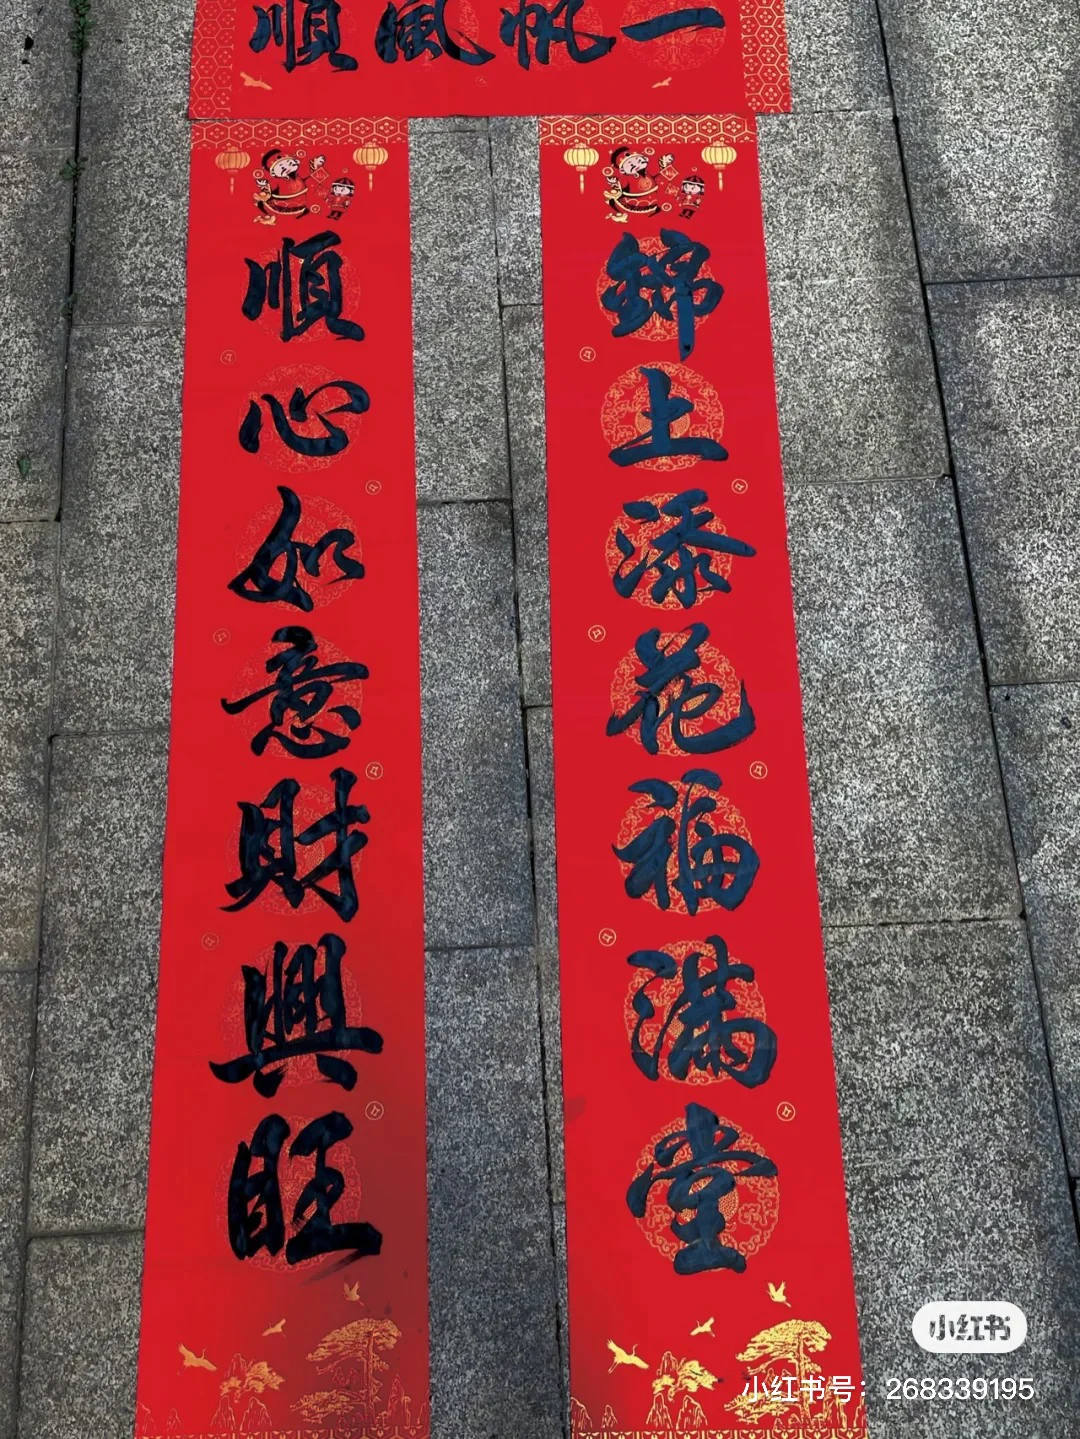 一帆風順
錦上添花福满堂
順心如意財興旺
小红书
小红书号：268339195